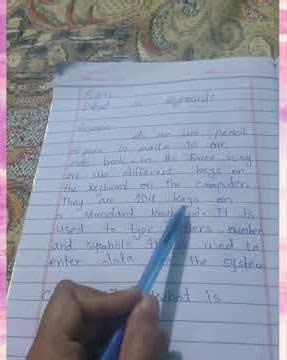 What is keyboard?
Answer
As we use pencil
or pen to write in our
note book. in the same way
we use different keys on
the keyboard on the computer.
They are 104 keys on
a standard keyboard. It is
used to type letters, number
and symbols. used to
enter data the system
What is